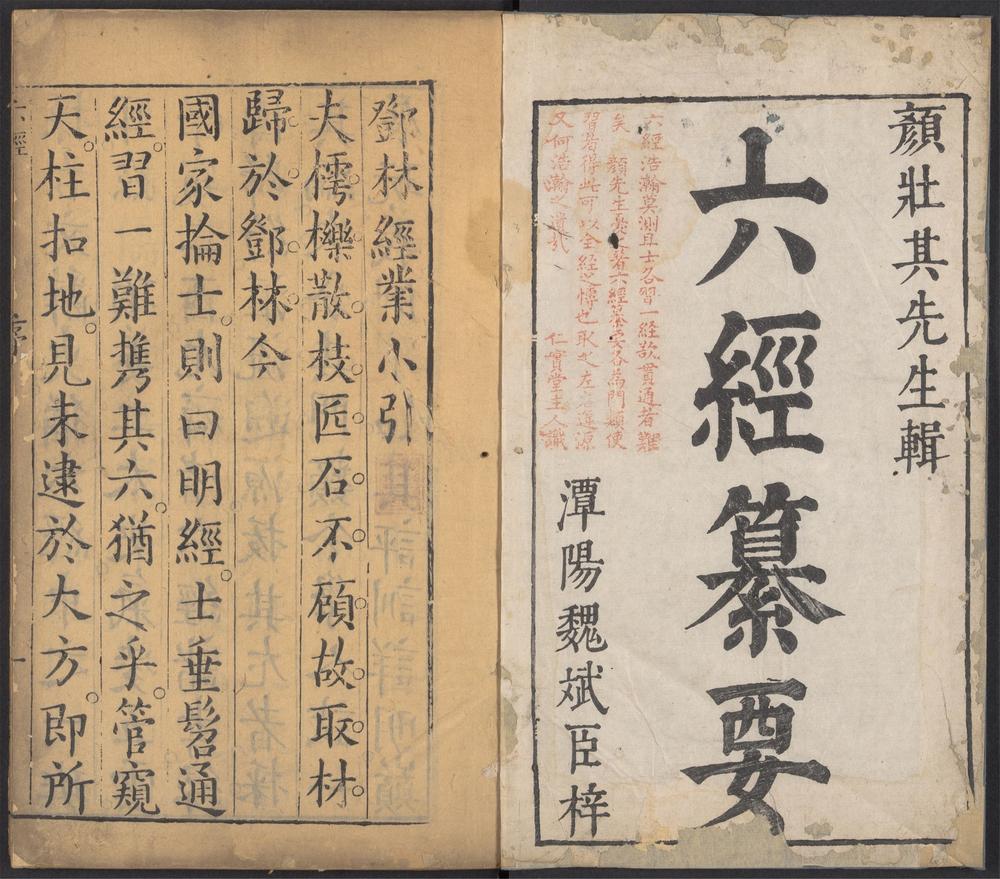 顏壯其先生輯
六經纂要
六經浩瀚莫測且士各習一經欲貫通者難
矣 顏先生彙之著六經纂要各為門類使
習者得此可以全經之愽也取之左右逢源
又何浩瀚之 哉 仁實堂主人識
潭陽魏斌臣梓
鄧林經業小引
夫樗櫟散枝。匠石不顧。故取材。
歸於鄧林。今
國家掄士。則曰明經。士垂髫通
經。習一難攜其六。猶之乎。管窺
天。柱扣地。見未逮於大方。即所
六經 序 一